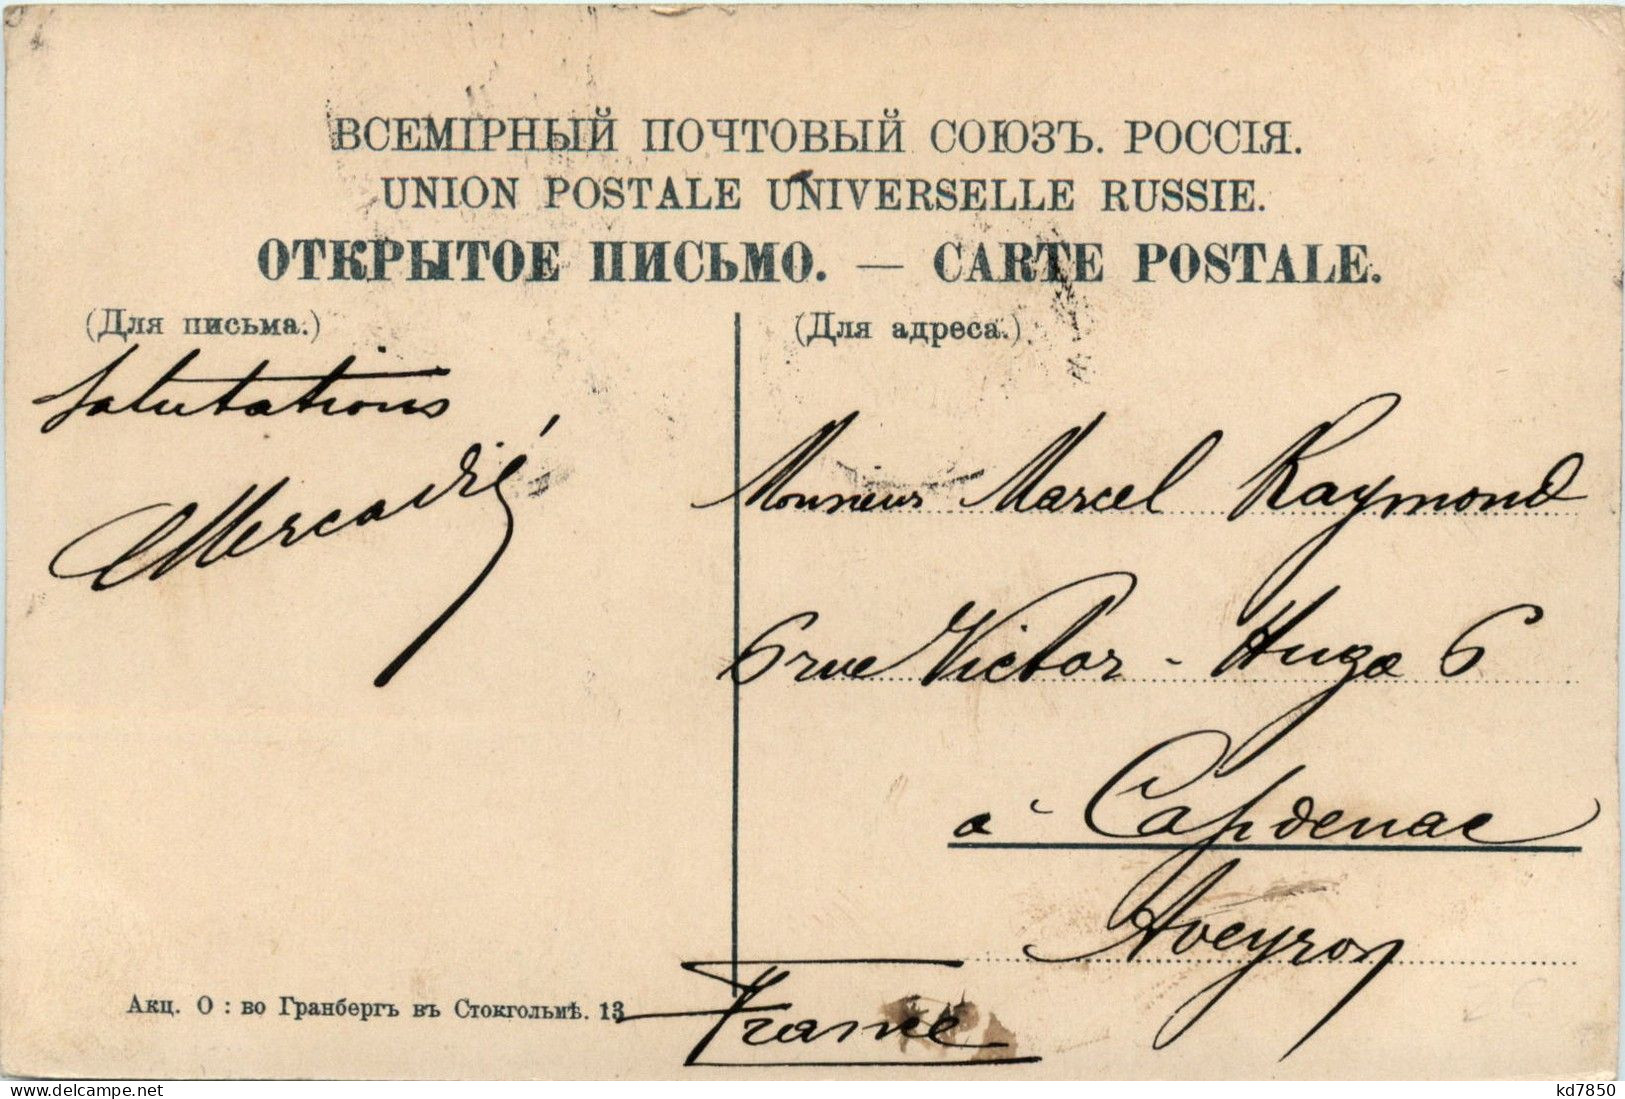 ВСЕМІРНЫЙ ПОЧТОВЫЙ СОЮЗЪ. РОССІЯ.
UNION POSTALE UNIVERSELLE RUSSIE.
ОТКРЫТОЕ ПИСЬМО. — CARTE POSTALE.
(Для письма.)
Salutations
Mercadié
(Для адреса.)
Monsieur Marcel Raymond
6 rue Victor-Hugo 6
à Capdenac
Aveyron
France
Акц. О : во Гранбергъ въ Стокгольмѣ. 13
https://www.delcampe.net
kd7850